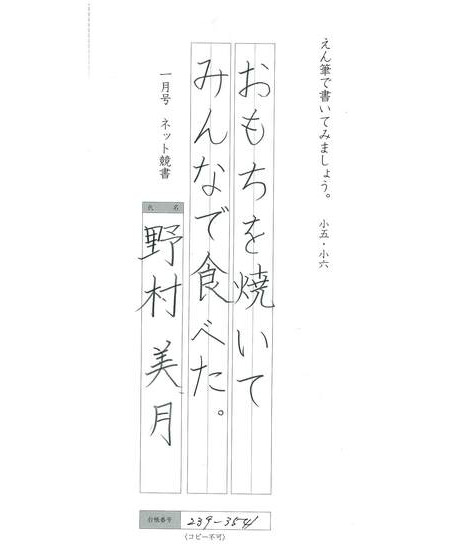 えん筆で書いてみましょう。 小五・小六
おもちを焼いて
みんなで食べた。
一月号 ネット競書
氏 名
野村 美月
台帳番号 239-3541
(コピー不可)